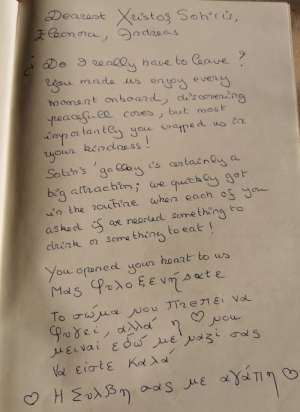 Dearest Xristos Sotiris,
Eleonora, Andreas
¿ Do I really have to leave ?
You made us enjoy every
moment onboard, discovering
peacefull coves, but most
importantly you wrapped us in
your kindness !
Sotiris' galley is certainly a
big attraction; we quickly got
in the routine when each of you
asked if we needed something to
drink or something to eat !
You opened your heart to us
Μας φιλοξενήσατε
Το σώμα μου πρεπει να
φυγει, αλλά η ♡ μου
μειναί εδώ με μαζί σας
Να είστε καλά
♡ Η Συλβη σας με αγάπη ♡